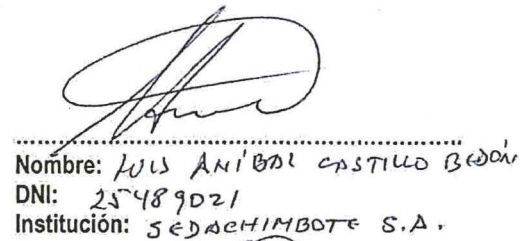 Nombre: LUIS ANÍBAL CASTILLO BEDÓN
DNI: 25489021
Institución: SEDACHIMBOTE S.A.